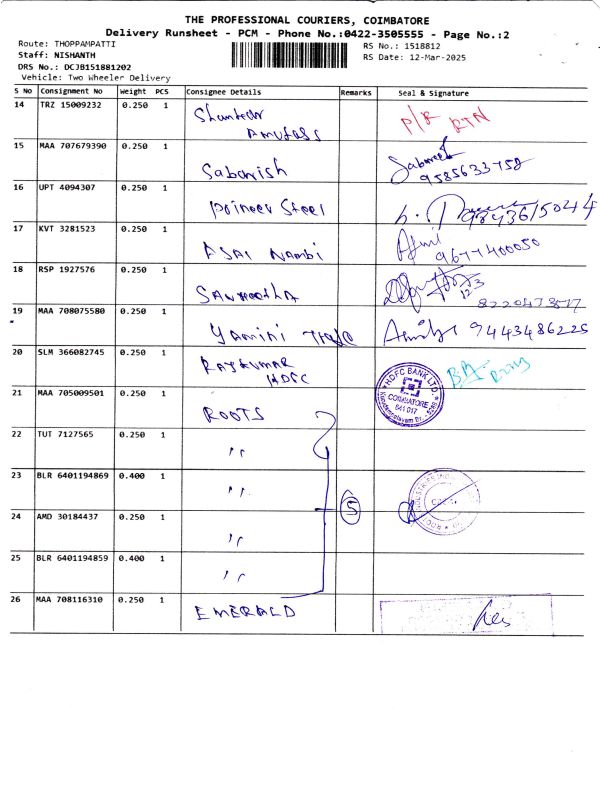 THE PROFESSIONAL COURIERS, COIMBATORE
Delivery Runsheet - PCM - Phone No.:0422-3505555 - Page No.:2
Route: THOPPAMPATTI
RS No.: 1518812
Staff: NISHANTH
RS Date: 12-Mar-2025
DRS No.: DCJB151881202
Vehicle: Two Wheeler Delivery
S No Consignment No Weight PCS Consignee Details Remarks Seal & Signature
14 TRZ 15009232 0.250 1
P/R RTN
15 MAA 707679390 0.250 1 Sabarish
9585633758
16 UPT 4094307 0.250 1 Poineer Steel
9843615044
17 KVT 3281523 0.250 1 ASAI Nambi
9677400050
18 RSP 1927576 0.250 1
19 MAA 708075580 0.250 1 Yamini
9443486225
20 SLM 366082745 0.250 1 RAJKUMAR
HDFC
HDFC BANK LTD.
COIMBATORE
641 017
21 MAA 705009501 0.250 1 ROOTS
22 TUT 7127565 0.250 1 ''
23 BLR 6401194869 0.400 1 ''
5
24 AMD 30184437 0.250 1 ''
25 BLR 6401194859 0.400 1 ''
26 MAA 708116310 0.250 1 EMERALD